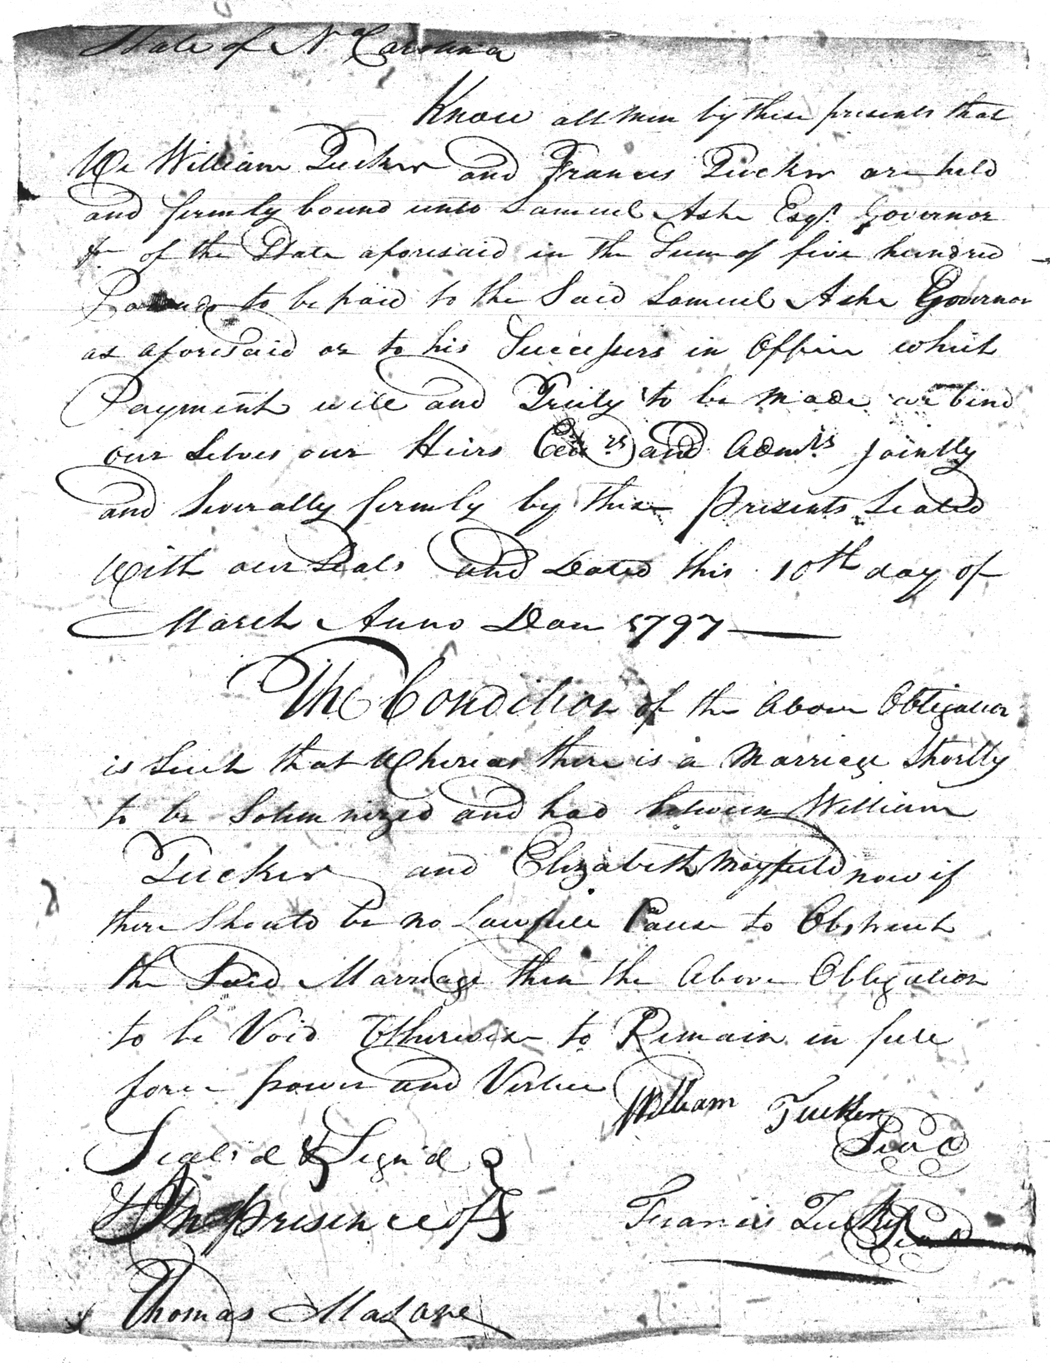 State of No Carolina
Know all men by these presents that
We William Tucker and Francis Tucker are held
and firmly bound unto Samuel Ashe Esqr. Governor
&c of the State aforesaid in the Sum of five hundred
Pounds to be paid to the Said Samuel Ashe Governor
as aforesaid or to his Successors in Office which
Payment will and Truly to be made we bind
our Selves our Heirs Exrs and Admrs Jointly
and Severally firmly by these Presents Sealed
With our Seals and Dated this 10th day of
March Anno Dom 1797
The Condition of the above Obligation
is Such that Whereas there is a Marriage Shortly
to be Solemnized and had between William
Tucker and Elizabeth Mayfield now if
there Should be no Lawfull Cause to Obstruct
the Said Marriage then the above Obligation
to be Void Otherwise to Remain in full
force power and Virtue
William Tucker
Seal
Seal'd & Sign'd
In presence of
Francis Tucker Seal
Thomas